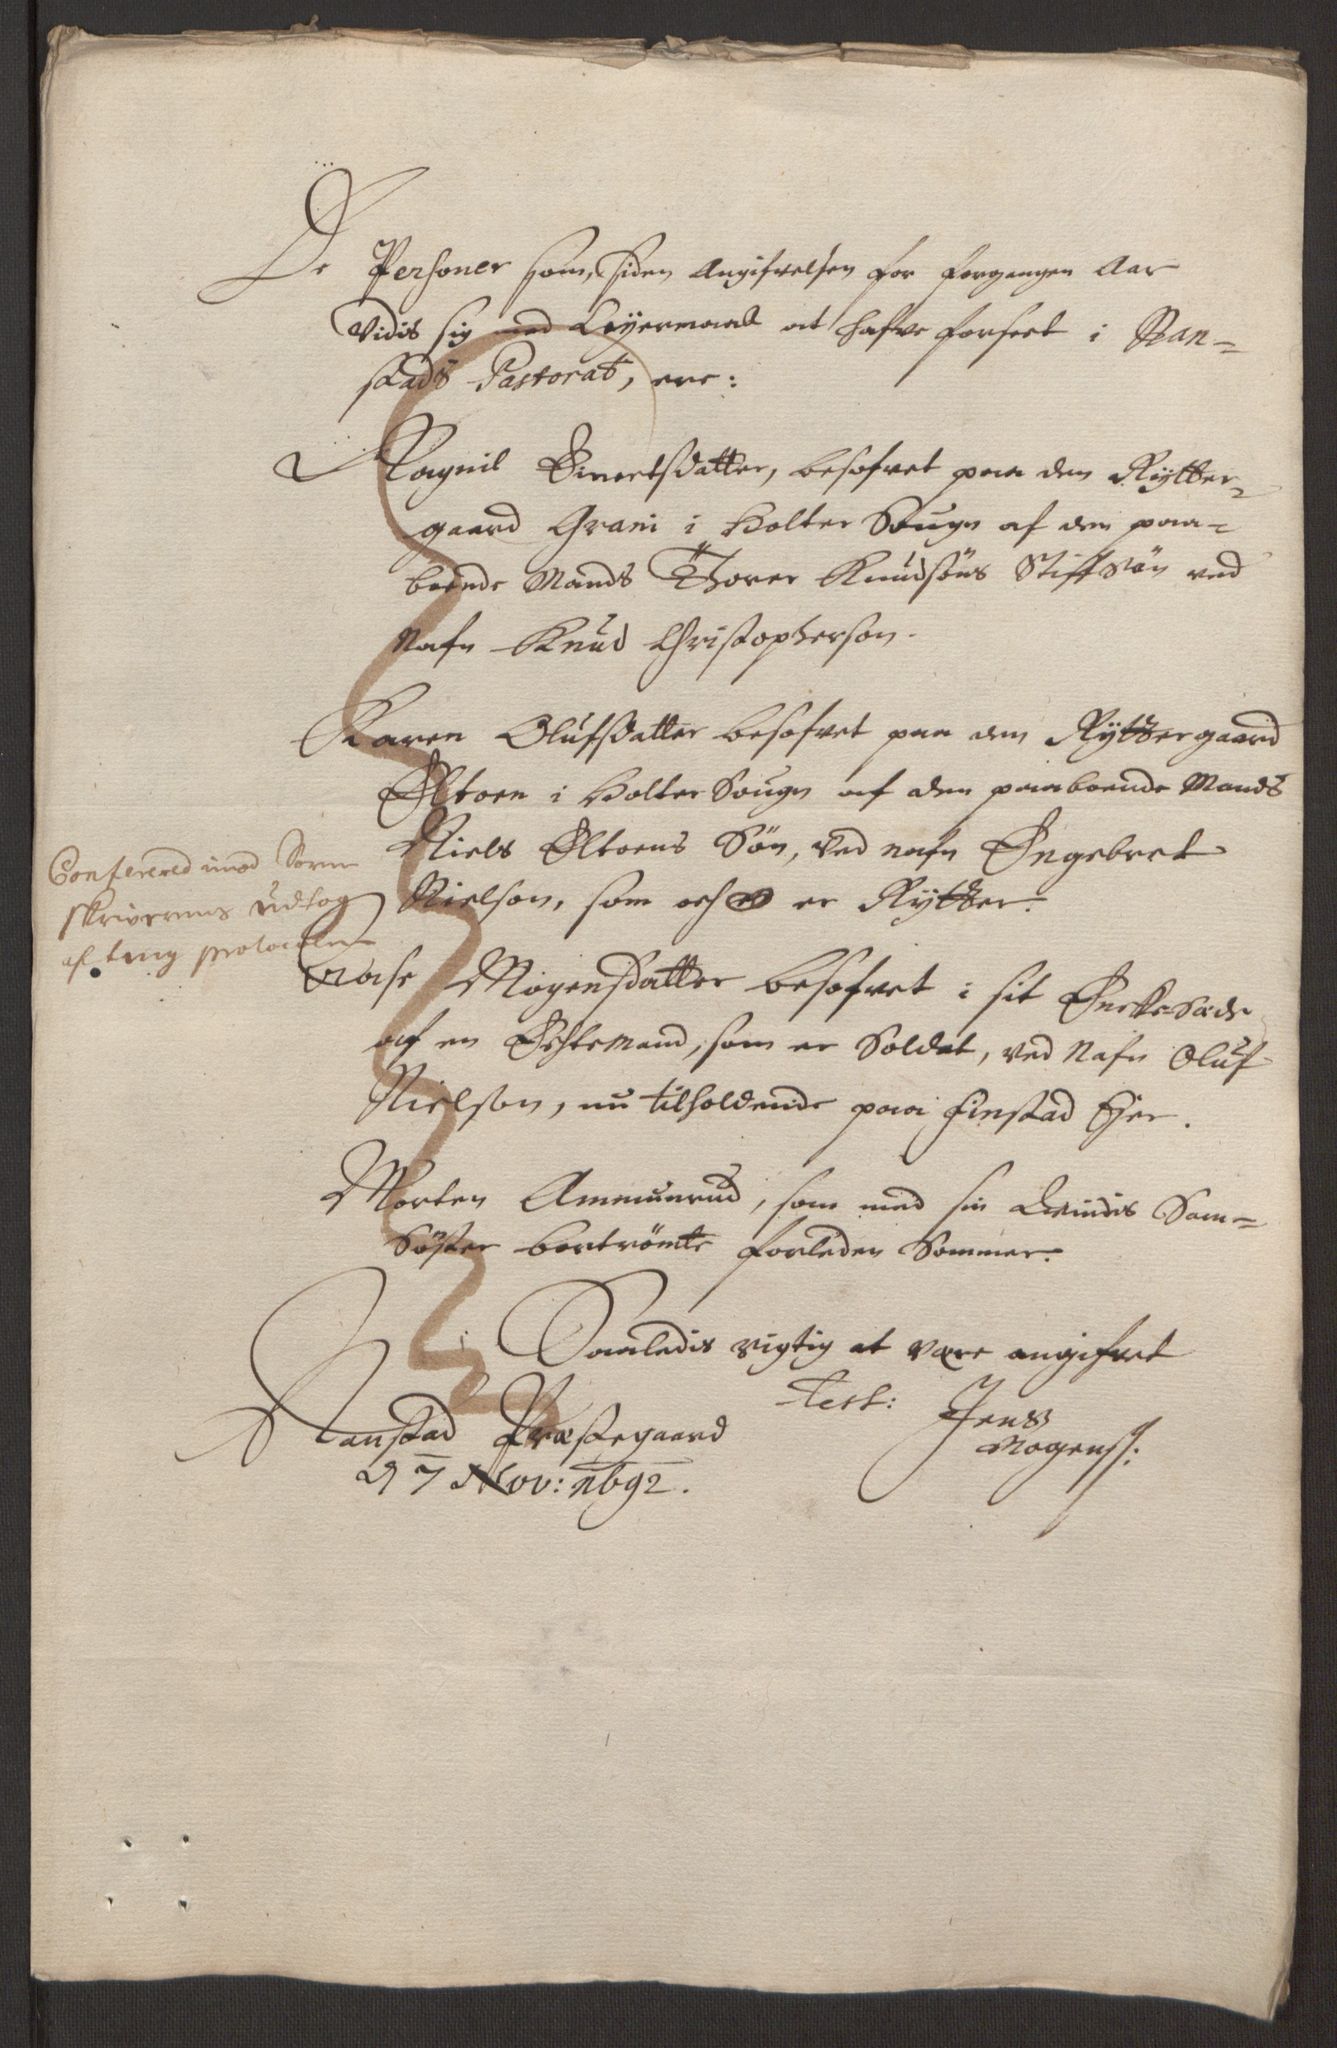 De Personer som, siden Angifvelsen for forgangen Aar
vidis sig med Leyermaal at hafve forseet i Nan-
stads Pastorat, ere:
Ragnil Sivertsdatter, besofvet paa den Rytter-
gaard Grani i Holter Sougn af den paa-
boende Mands Thorer Knudsöns Stiffsön ved
Nafn Knud Christopherson.
Karen Olufsdatter besofvet paa den Ryttergaard
Eltoen i Holter Sougn af den paaboende Mands
Niels Eltoens Sön, ved nafn Engebret
Nielson, som och er Rytter.
Conferered imod Soren
skriverens udtog
af ting protocollen
Aase Mogensdatter besofvet i sit Enckesæde
af en Echtemand, som er Soldat, ved Nafn Oluf
Nielson, nu tilholdende paa Finstad Ejer.
Morten Ammunrud, som med sin Qvindis Sam-
Söster bortrömte forleden Sommer.
Saaledis rigtig at være angifvet
Test: Jens
Mogenss:
Nanstad Præstegaard
d 7 Nov: 1692.